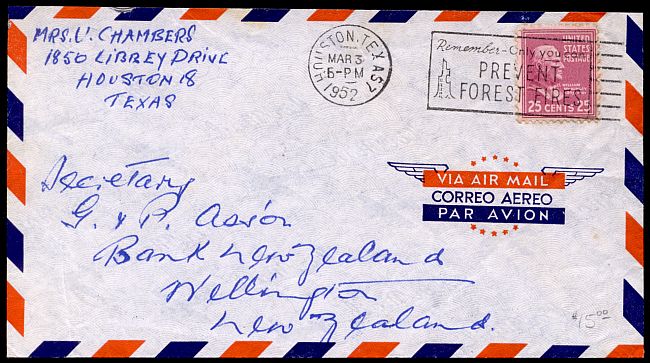 MRS. V. CHAMBERS
1850 LIBREY DRIVE
HOUSTON 18
TEXAS
HOUSTON, TEXAS 7
MAR 3
5-PM
1952
Remember-Only you can
PREVENT
FOREST FIRES
UNITED
STATES
POSTAGE
25 CENTS 25
VIA AIR MAIL
CORREO AEREO
PAR AVION
Secretary
G. & P.
Bank New Zealand
Wellington
New Zealand.
$15.00